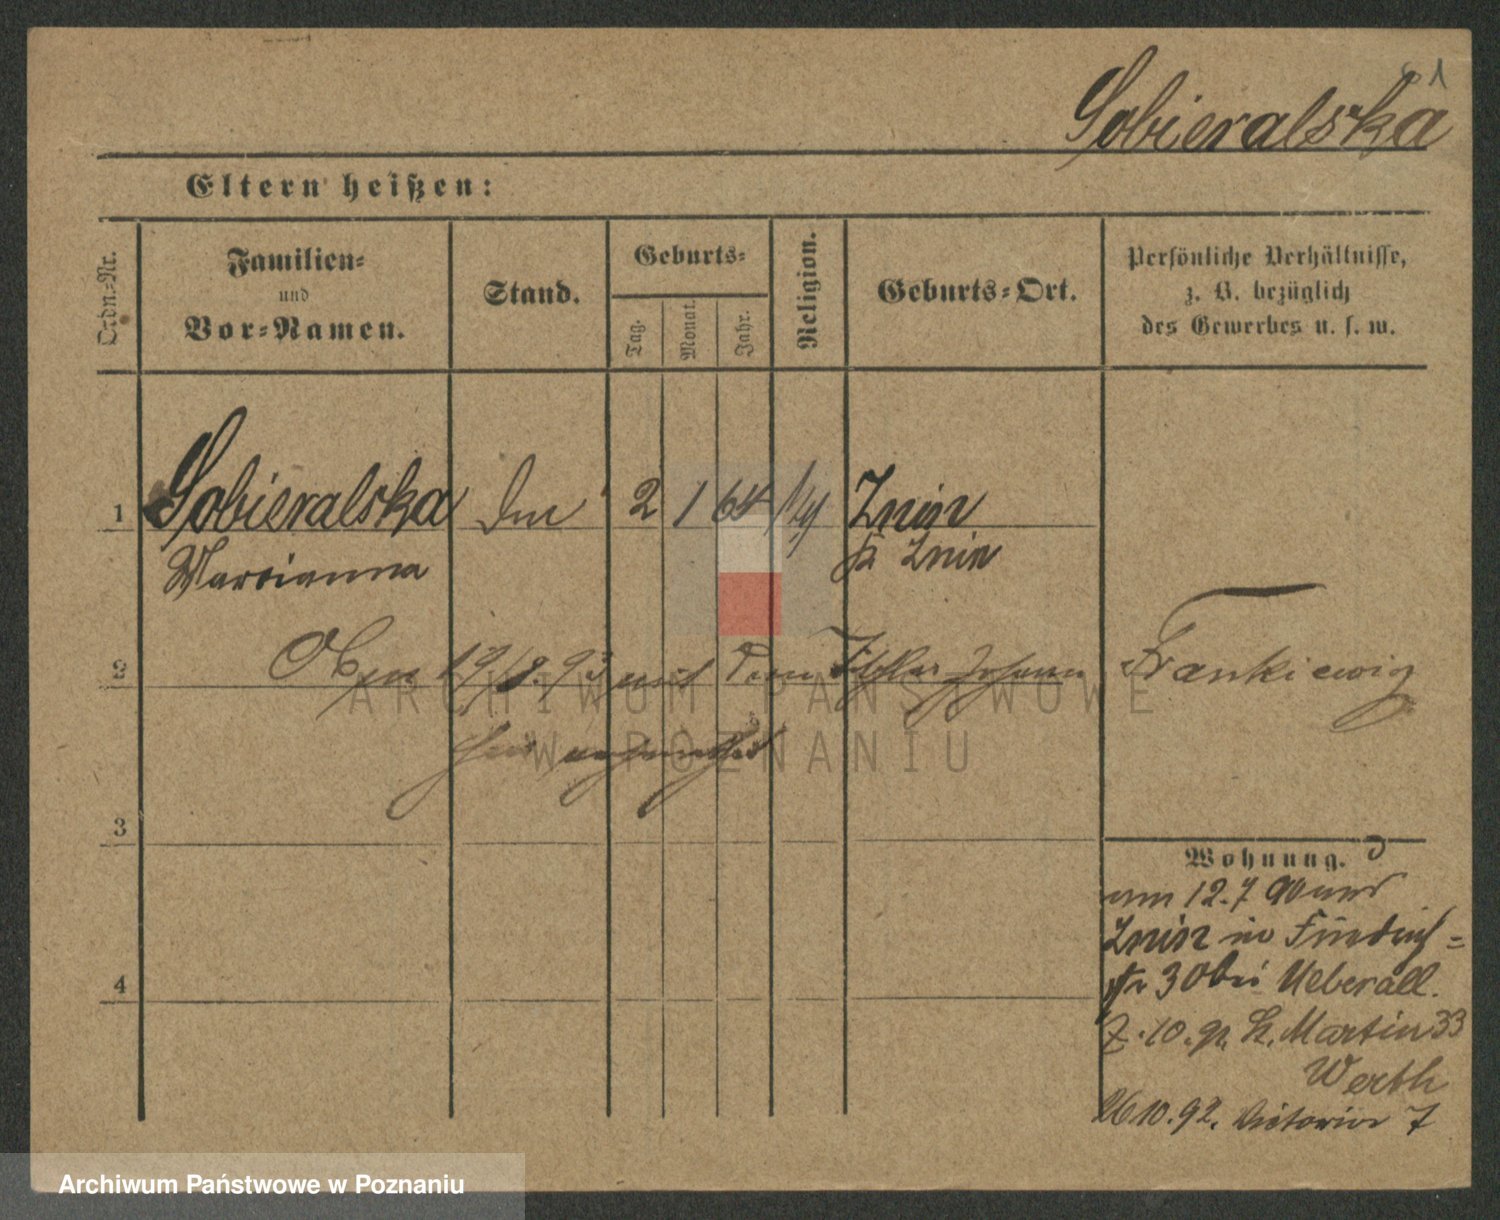 Sobieralska
Eltern heißen:
Ordn.-Nr.
Familien-
und
Vor-Namen.
Stand.
Geburts-
Tag.
Monat.
Jahr.
Religion.
Geburts-Ort.
Persönliche Verhältnisse,
z. B. bezüglich
des Gewerbes u. s. w.
1 Sobieralska 2 1 64 Znin
Marianna Znin
2 mit dem Johann Frankiewiz
3
4
Wohnung.
am 12.7 90
Znin in
30 bei Ueberall.
10. Martin 33
Werth
26 10.92. Victoria 7
ARCHIWUM PAŃSTWOWE
W POZNANIU
Archiwum Państwowe w Poznaniu